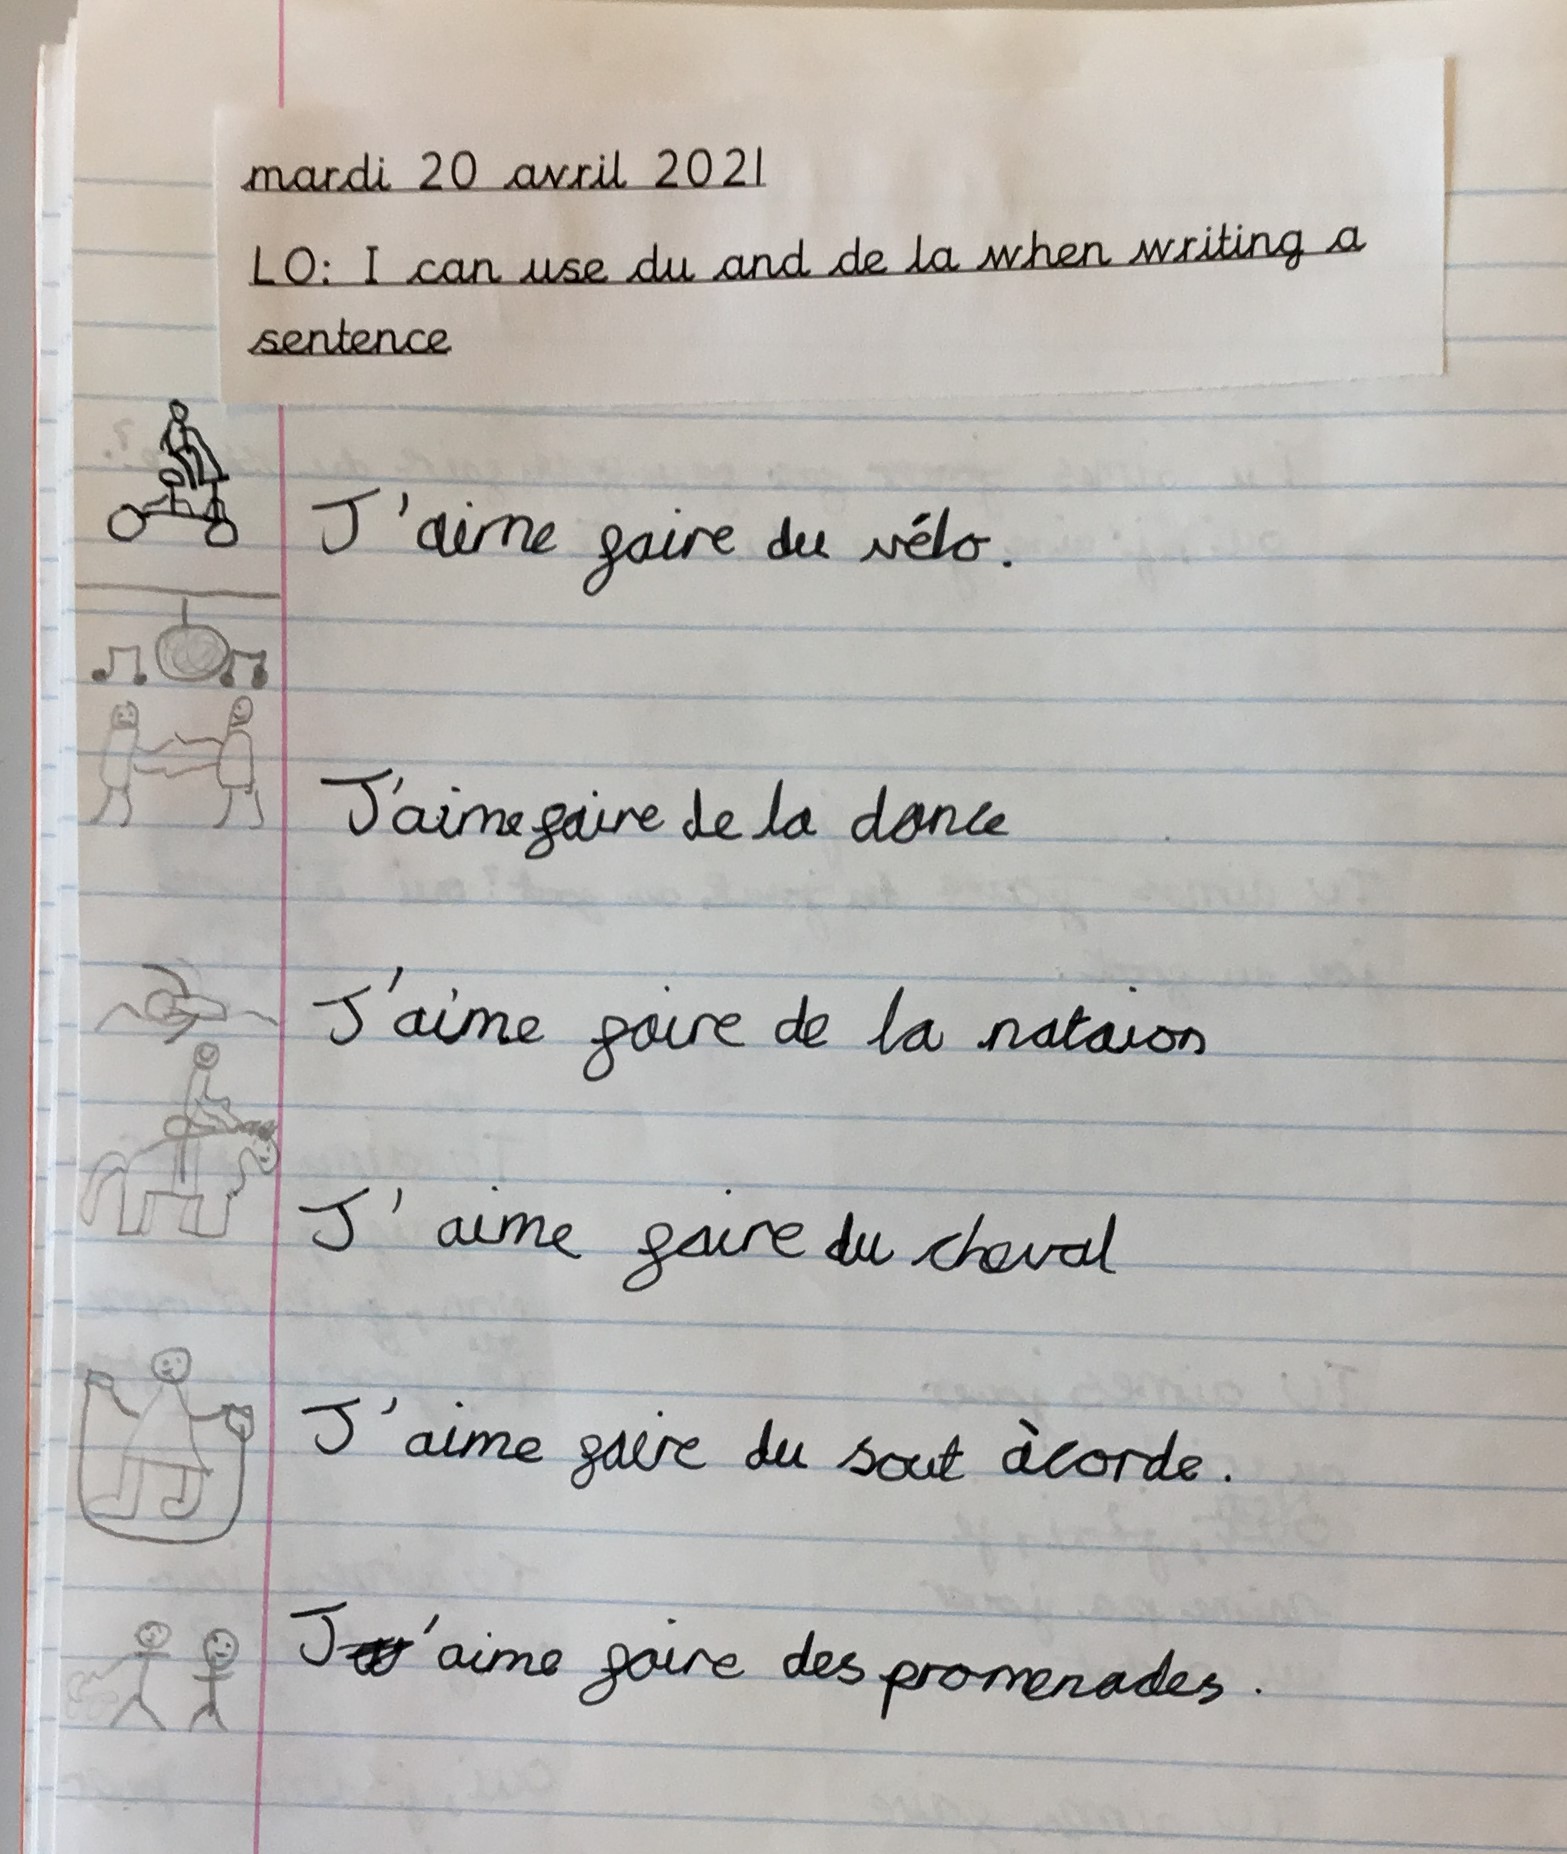 mardi 20 avril 2021
LO: I can use du and de la when writing a
sentence
J'aime faire du vélo.
J'aime faire de la dance
J'aime faire de la nataion
J'aime faire du cheval
J'aime faire du saut àcorde.
J'aime faire des promenades.